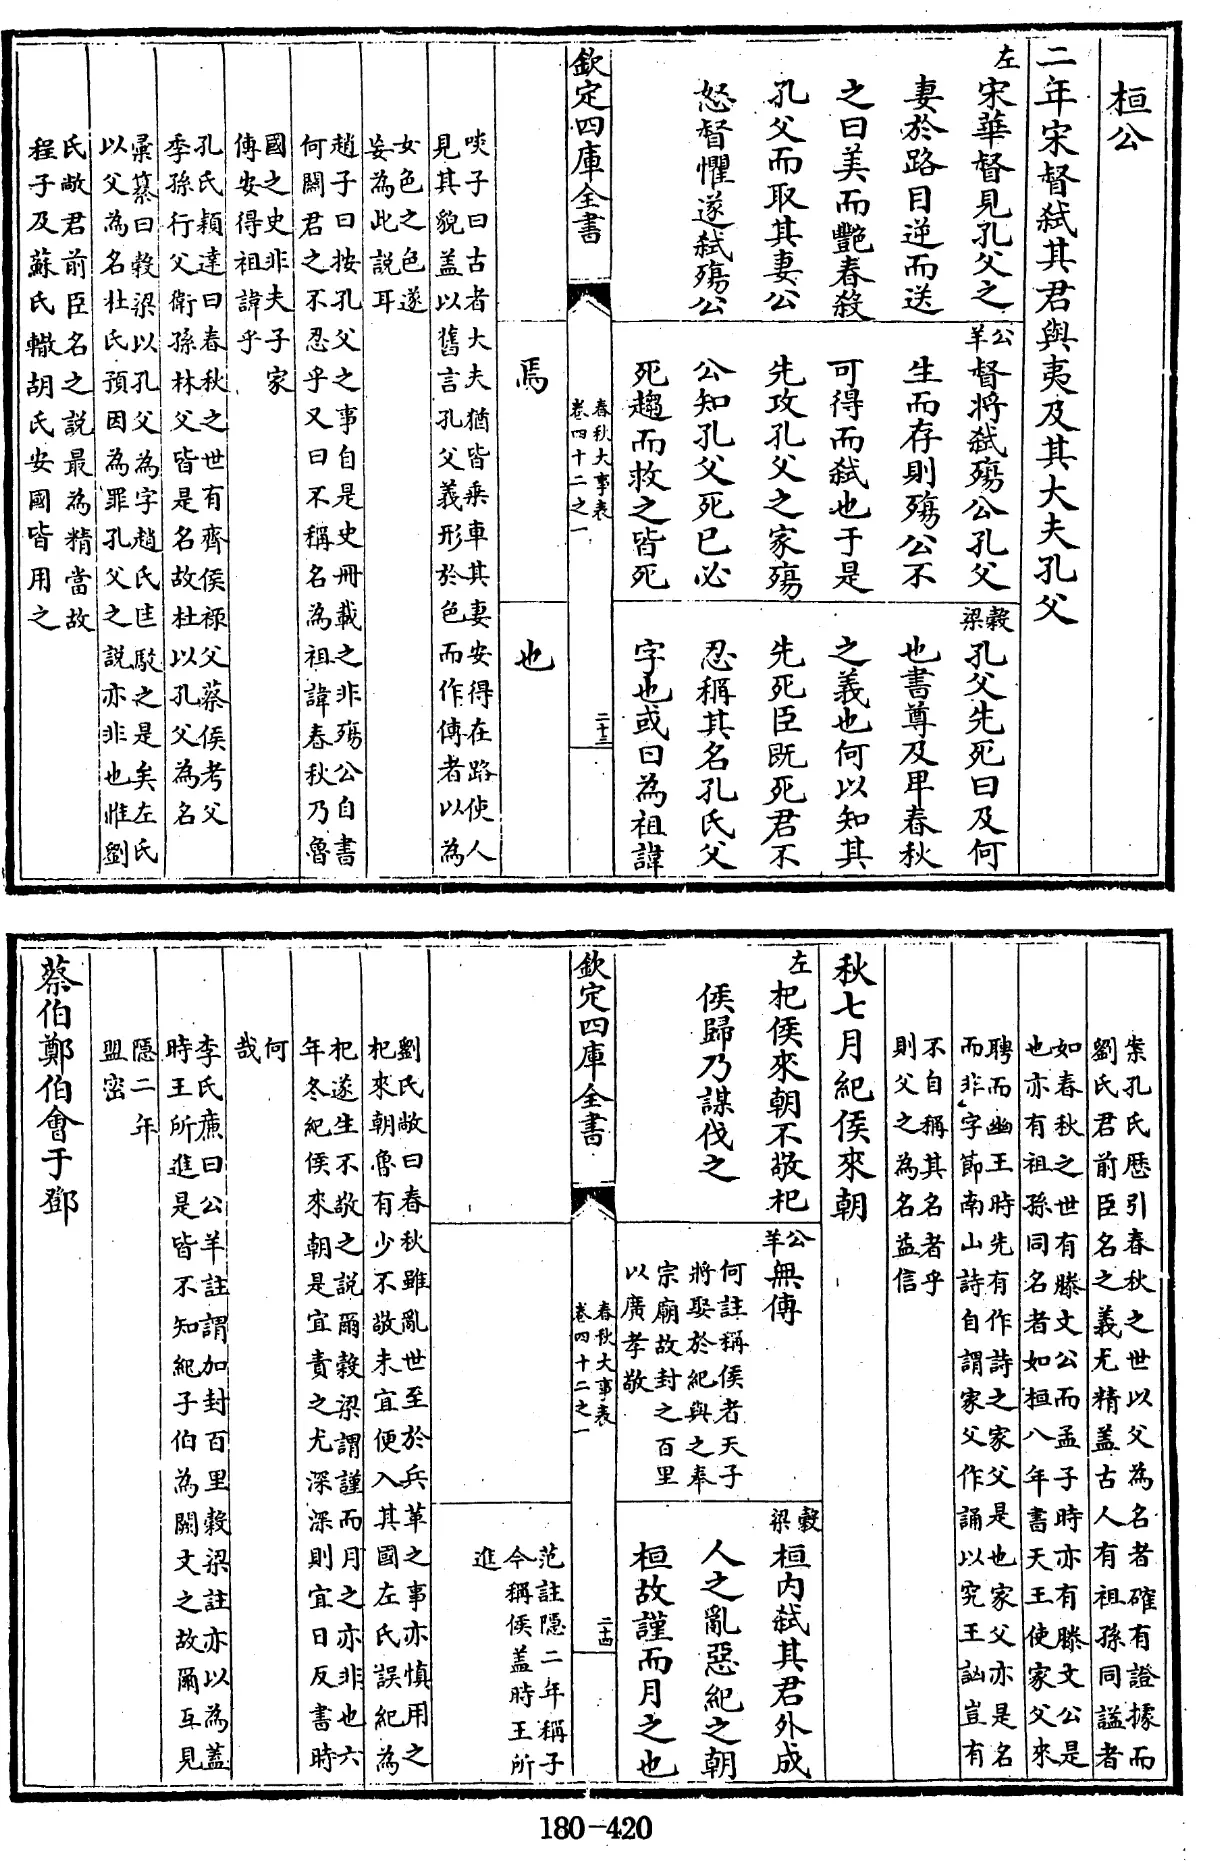 桓公
二年宋督弑其君與夷及其大夫孔父
左
宋華督見孔父之
妻於路目逆而送
之曰美而艷春殺
孔父而取其妻公
怒督懼遂弑殤公
公羊
督將弑殤公孔父
生而存則殤公不
可得而弑也于是
先攻孔父之家殤
公知孔父死已必
死趨而救之皆死
焉
穀梁
孔父先死曰及何
也書尊及卑春秋
之義也何以知其
先死臣既死君不
忍稱其名孔氏父
字也或曰為祖諱
也
欽定四庫全書
春秋大事表
卷四十二之一
二十三
啖子曰古者大夫猶皆乗車其妻安得在路使人
見其貌盖以舊言孔父義形於色而作傳者以為
女色之色遂
妄為此説耳
趙子曰按孔父之事自是史冊載之非殤公自書
何關君之不忍乎又曰不稱名為祖諱春秋乃魯
國之史非夫子家
傳安得祖諱乎
孔氏穎達曰春秋之世有齊侯祿父蔡侯考父
季孫行父衛孫林父皆是名故杜以孔父為名
彙纂曰穀梁以孔父為字趙氏匡駁之是矣左氏
以父為名杜氏預因為罪孔父之説亦非也惟劉
氏敞君前臣名之説最為精當故
程子及蘇氏轍胡氏安國皆用之
案孔氏歴引春秋之世以父為名者確有證據而
劉氏君前臣名之義尤精盖古人有祖孫同謚者
如春秋之世有滕文公而孟子時亦有滕文公是
也亦有祖孫同名者如桓八年書天王使家父來
聘而幽王時先有作詩之家父是也家父亦是名
而非字節南山詩自謂家父作誦以究王訩豈有
不自稱其名者乎
則父之為名益信
秋七月紀侯來朝
左
杞侯來朝不敬杞
侯歸乃謀伐之
公羊
無傳
何註稱侯者天子
將娶於紀與之奉
宗廟故封之百里
以廣孝敬
穀梁
桓内弑其君外成
人之亂惡紀之朝
桓故謹而月之也
欽定四庫全書
春秋大事表
卷四十二之一
二十四
范註隱二年稱子
今稱侯盖時王所
進
劉氏敞曰春秋雖亂世至於兵革之事亦慎用之
杞來朝魯有少不敬未宜便入其國左氏誤紀為
杞遂生不敬之説爾穀梁謂謹而月之亦非也六
年冬紀侯來朝是宜責之尤深深則宜日反書時
何
哉
李氏㢘曰公羊註謂加封百里穀梁註亦以為盖
時王所進是皆不知紀子伯為闕文之故爾互見
隱二年
盟密
蔡伯鄭伯會于鄧
180-420